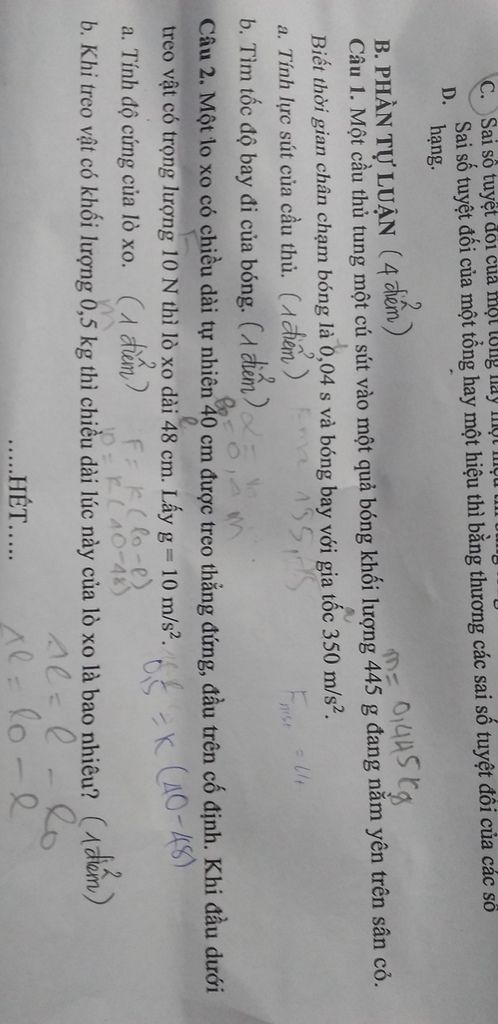 C. Sai số tuyệt đối của một tổng hay một
D. Sai số tuyệt đối của một tổng hay một hiệu thì bằng thương các sai số tuyệt đối của các số
hạng.
B. PHẦN TỰ LUẬN (4 điểm)
m = 0,445 kg
Câu 1. Một cầu thủ tung một cú sút vào một quả bóng khối lượng 445 g đang nằm yên trên sân cỏ.
Biết thời gian chân chạm bóng là 0,04 s và bóng bay với gia tốc 350 m/s².
a. Tính lực sút của cầu thủ. (1 điểm)
b. Tìm tốc độ bay đi của bóng. (1 điểm)
Câu 2. Một lo xo có chiều dài tự nhiên 40 cm được treo thẳng đứng, đầu trên cố định. Khi đầu dưới
treo vật có trọng lượng 10 N thì lò xo dài 48 cm. Lấy g = 10 m/s².
0,5 = K (40 - 48)
a. Tính độ cứng của lò xo. (1 điểm)
F = K (lo - l)
10 = K (40 - 48)
b. Khi treo vật có khối lượng 0,5 kg thì chiều dài lúc này của lò xo là bao nhiêu? (1 điểm)
Δl = l - lo
Δl = lo - l
.....HẾT.....